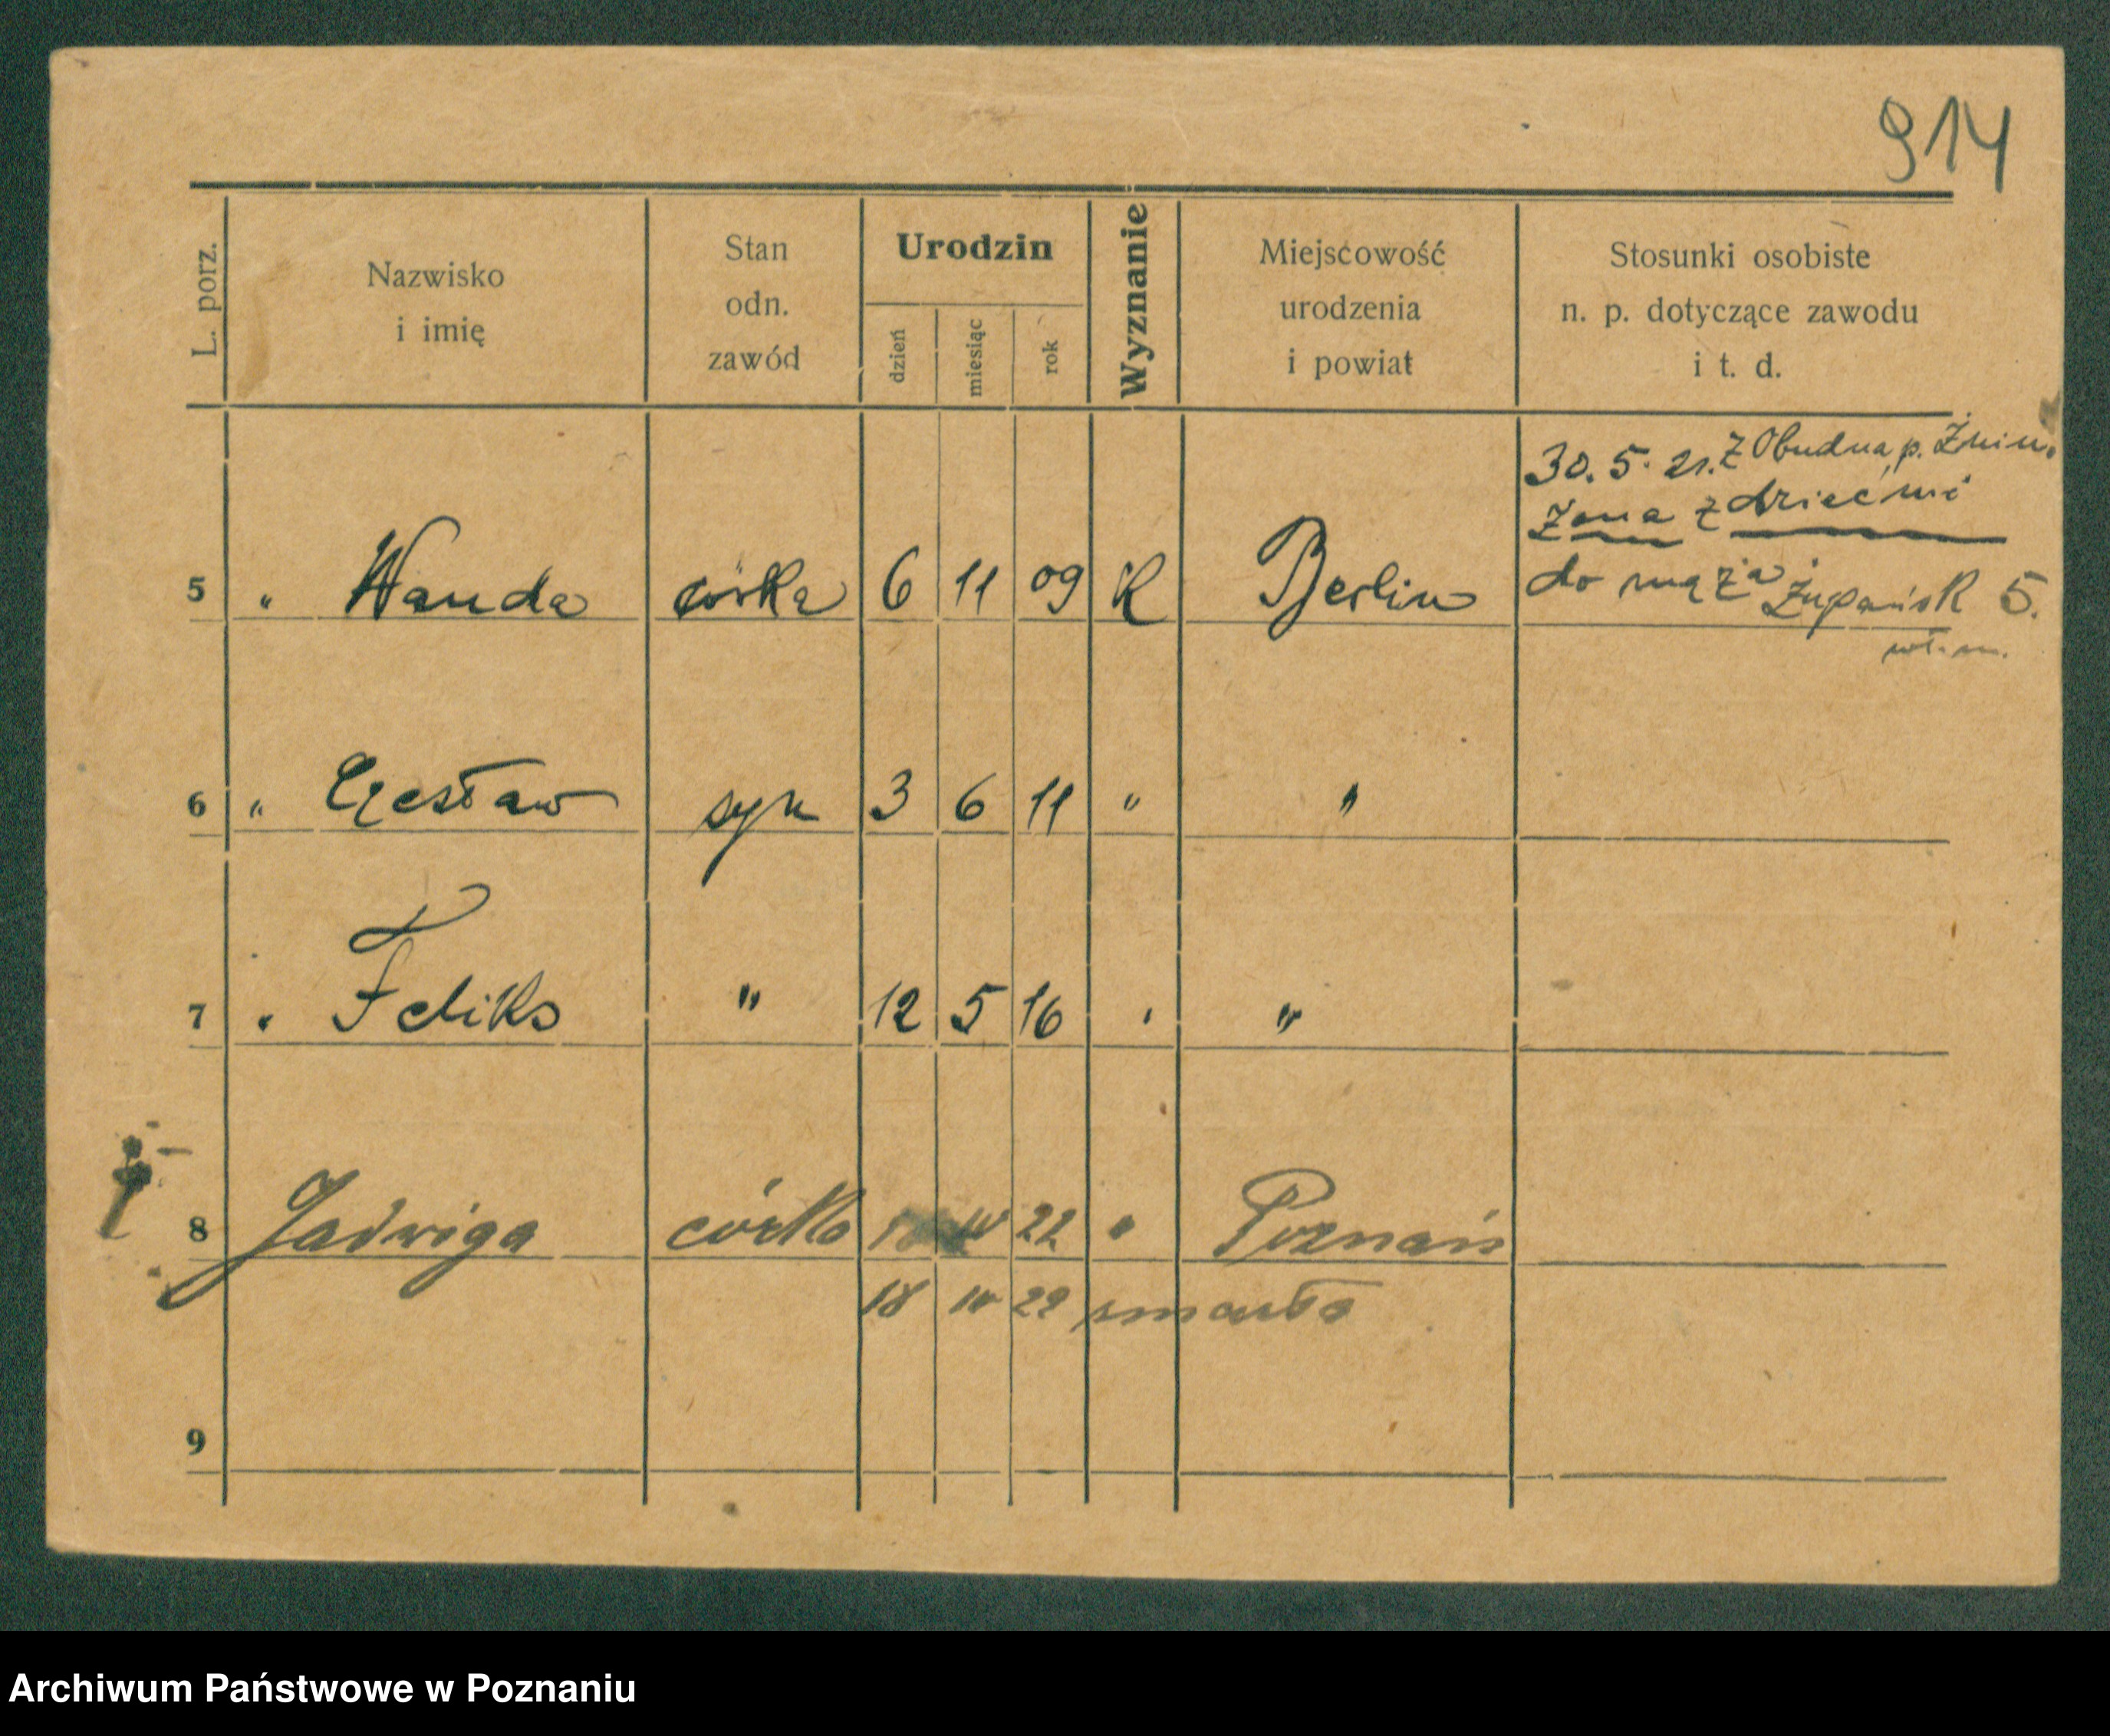 914
L. porz.
Nazwisko
i imię
Stan
odn.
zawód
Urodzin
dzień
miesiąc
rok
Wyznanie
Miejscowość
urodzenia
i powiat
Stosunki osobiste
n. p. dotyczące zawodu
i t. d.
30. 5. 21. z Obudna, p. Żnin.
Żona z dziećmi
do męża Żupańsk 5.
5 " Wanda córka 6 11 09 K Berlin
6 " Czesław syn 3 6 11 " "
7 " Feliks " 12 5 16 " "
8 Jadwiga córka 22 " Poznań
18 22 zmarła
9
Archiwum Państwowe w Poznaniu